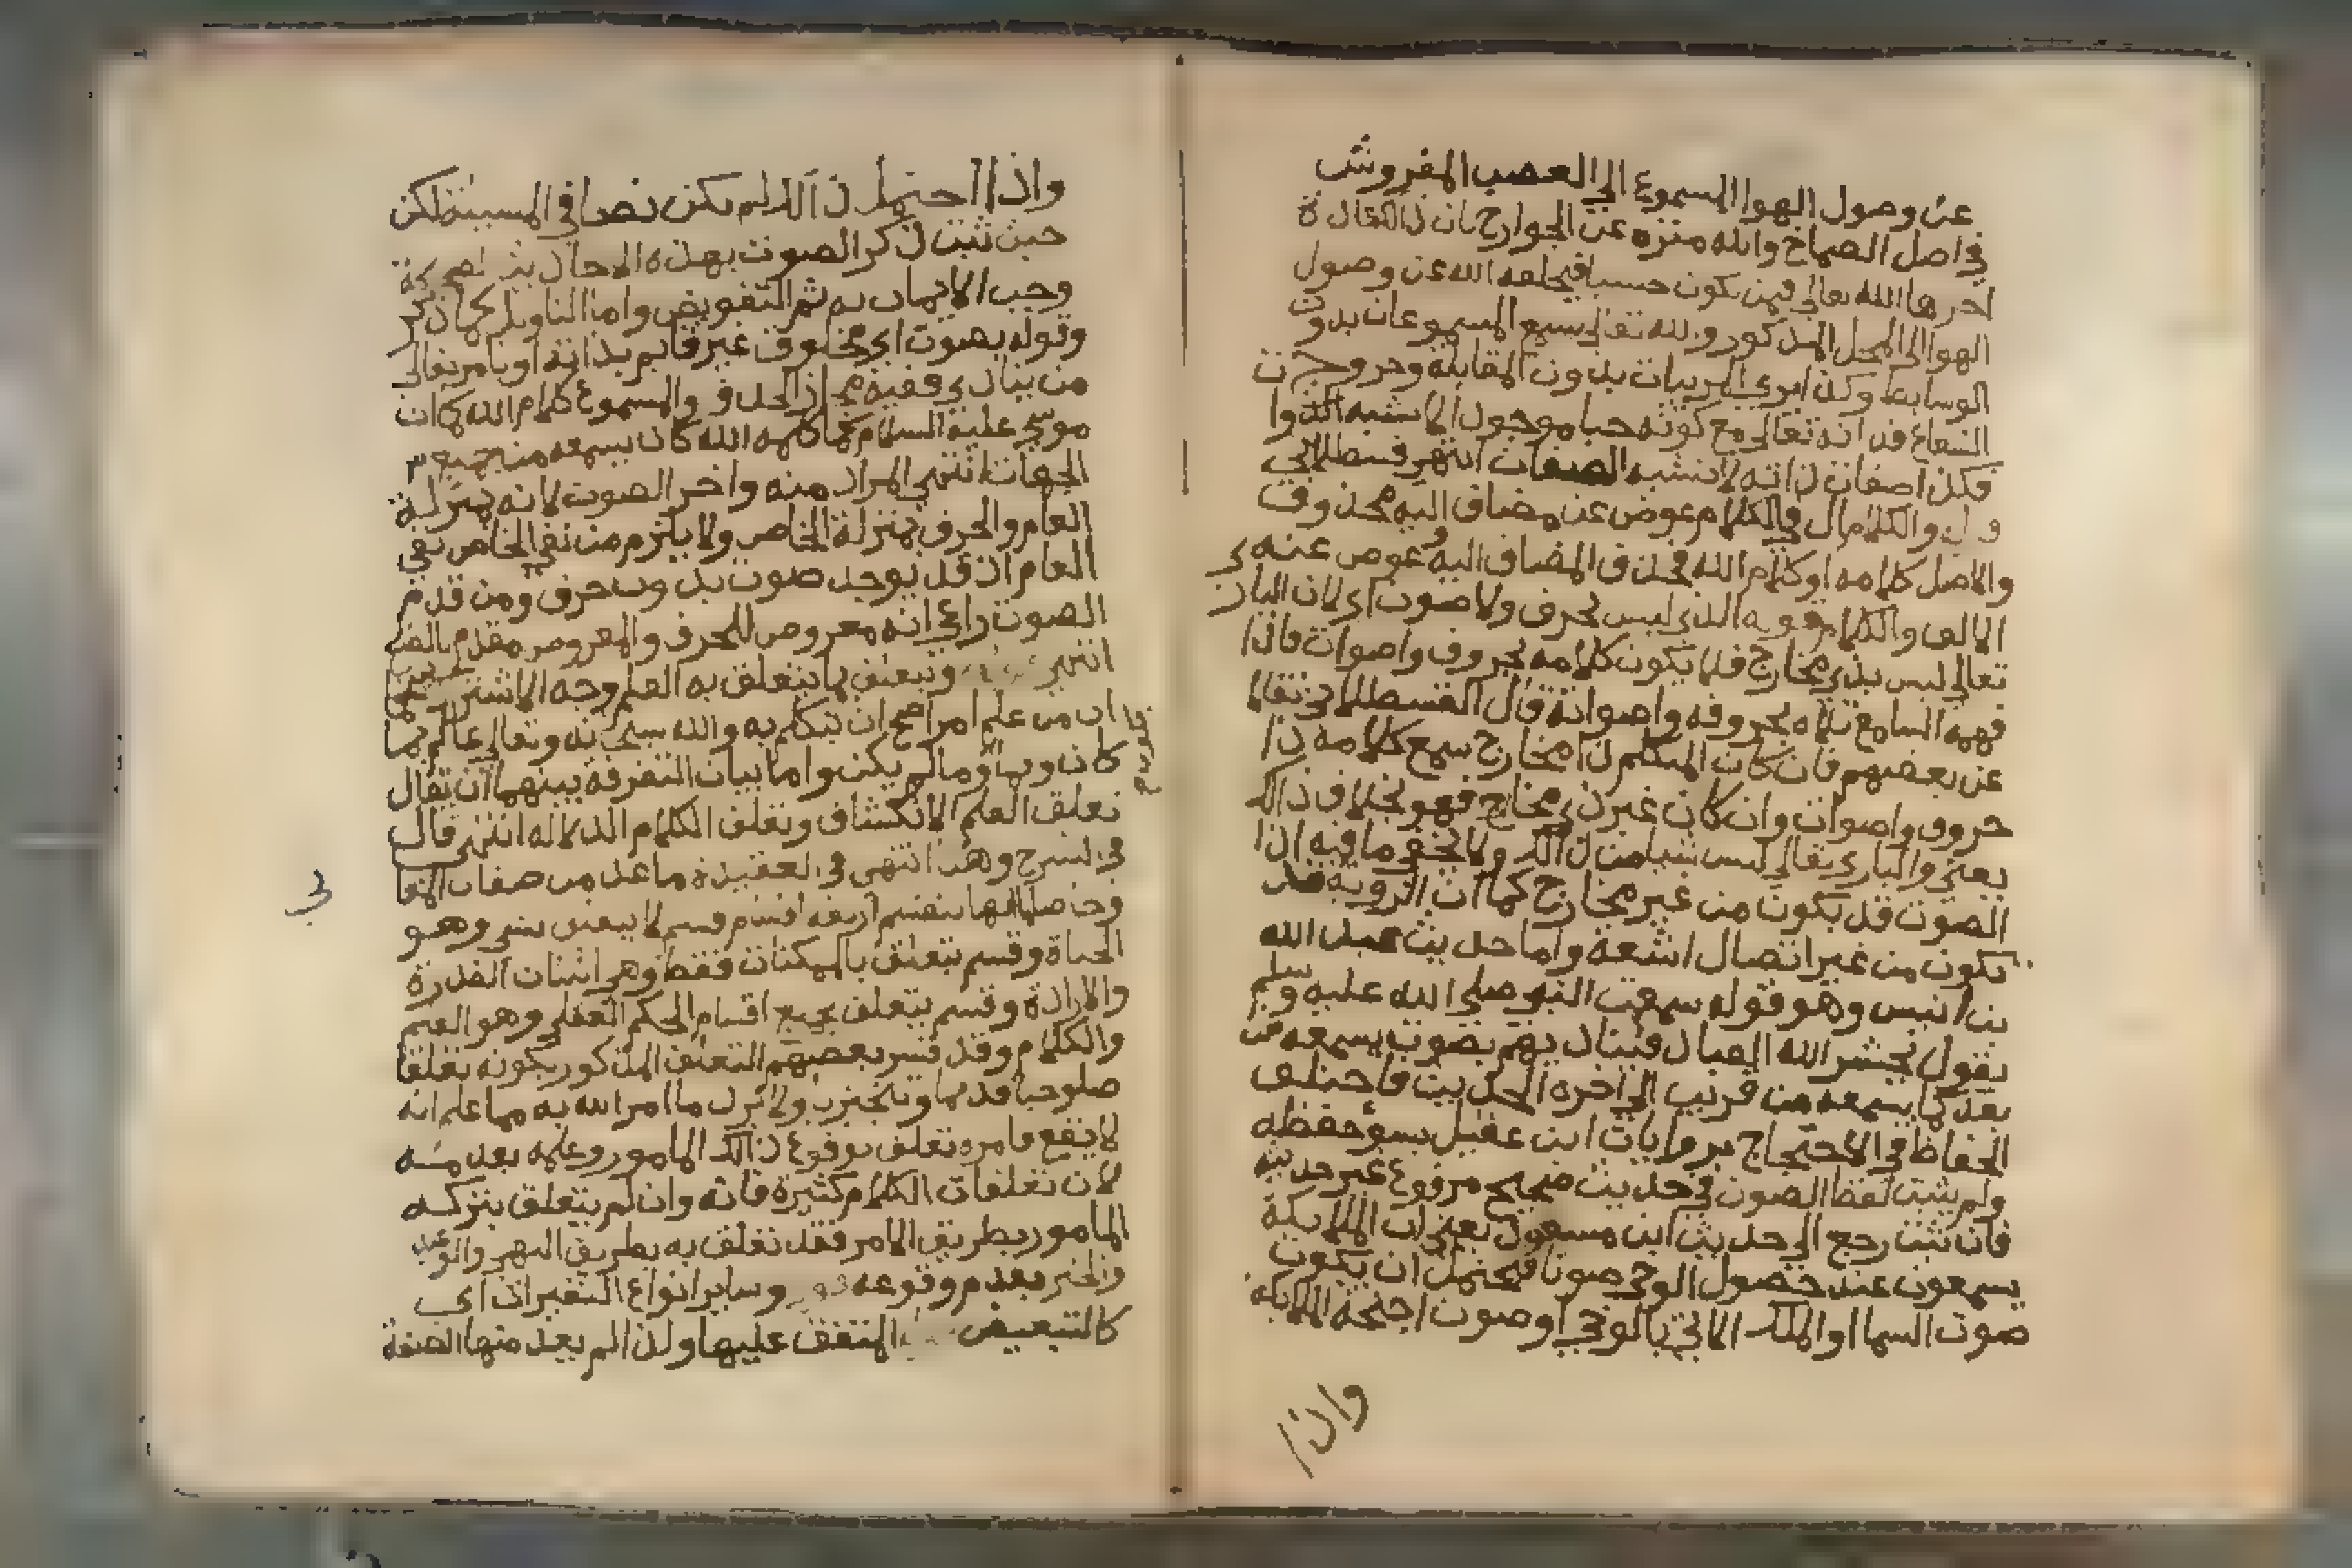 عن وصول الهوا المسموع الي العصب المفروش
في اصل الصماخ والله منزه عن الجوارح بان ذا كعادة
اجرها الله تعالي فيمن يكون حسيا فيخلقه الله عن وصول
الهوا الي المحل المذكور والله تعالي يسمع المسموعات بدون
الوسايط وكذا يري المريات بدون المقابلة وخروج
الشعاع فذاته تعالي مع كونه حيا موجودا لا تشبه الذوا
فكذا صفات ذاته لا تشبه الصفات انتهي قسطلاني
والكلام ال في الكلام عوض عن مضاف اليه محذوف
والاصل كلامه او كلام الله فحذف المضاف اليه وعوض عنه
الالف والكلام قوله الذي ليس بحرف ولا صوت اي لان البار
تعالي ليس بذي مخارج فلا يكون كلامه بحروف واصوات فاذا
فهمه السامع تلاه بحروفه واصواته قال القسطلاني نقلا
عن بعضهم فان كان المتكلم ذا مخارج سمع كلامه ذا
حروف واصوات وان كان غير ذي مخارج فهو بخلاف ذلك
يعني والباري تعالي ليس شيا من ذلك ولا يخفي ما فيه اذا
الصوت قد يكون من غير مخارج كما ان الروية قد
تكون من غير اتصال اشعة واما حديث عبد الله
بن انيس وهو قوله سمعت النبي صلي الله عليه وسلم
يقول يحشر الله العباد فيناديهم بصوت يسمعه من
بعد كما يسمعه من قرب الي اخره الحديث فاختلف
الحفاظ في الاحتجاج بروايات ابن عقيل بسو حفظه
ولم يثبت لفظ الصوت في حديث صحيح مرفوع غير حديثه
فان ثبت رجع الي حديث ابن مسعود يعني ان الملايكة
يسمعون عند حصول الوحي صوتا فيحتمل ان يكون
صوت السما او الملك الاتي بالوحي او صوت اجنحة الملايكة
واذا
واذا احتمل ذلك لم يكن نصا في المسيلة لكن
حيث ثبت ذكر الصوت بهذه الاحاديث الصحيحة
وجب الايمان به ثم التفويض واما التاويل كما ذكر
وقوله بصوت اي مخلوق غير قايم بذاته او يامر تعالي
من ينادي ففيه مجاز الحذف والمسموع كلام الله كما ان
موسي عليه السلام لما كلمه الله كان يسمعه من جميع
الجهات انتهي المراد منه واخر الصوت لانه بمنزلة
العام والحرف بمنزلة الخاص ولا يلزم من نفي الخاص نفي
العام اذ قد يوجد صوت بدون حرف ومن قدم
الصوت راعي انه معروض للحرف والمعروض مقدم بالطبع
انتهي ويتعلق بما يتعلق به العلم وجه الاشتراك
ان من علم امرا صح ان يتكلم به والله سبحانه وتعالي عالم بما
كان وبما وما لم يكن واما بيان التفرقة بينهما ان يقال
تعلق العلم الانكشاف وتعلق الكلام الدلالة انتهي قال
في الشرح وهذا انتهي في العقيدة ما عد من صفات المعا
وحاصلها انها تنقسم اربعة اقسام قسم لا يتعلق بشي وهو
الحياة وقسم يتعلق بالممكنات فقط وهي اثنان القدرة
والارادة وقسم يتعلق بجميع اقسام الحكم العقلي وهو العلم
والكلام وقد فسر بعضهم التعلق المذكور بكونه تعلقا
صلوحيا قديما وتنجيزيا ولا يرد ما امر الله به مما علم انه
لا يقع فامره تعلق بوقوع ذلك المامور وعلمه بعدمه
لان تعلقات الكلام كثيرة فانه وان لم يتعلق بتركه
المامور بطريق الامر فقد تعلق به بطريق النهي والوعيد
والخبر بعدم وقوعه وساير انواع التغيرات اي
كالتبعيض المتفق عليها ولذا لم يعد منها الصفة